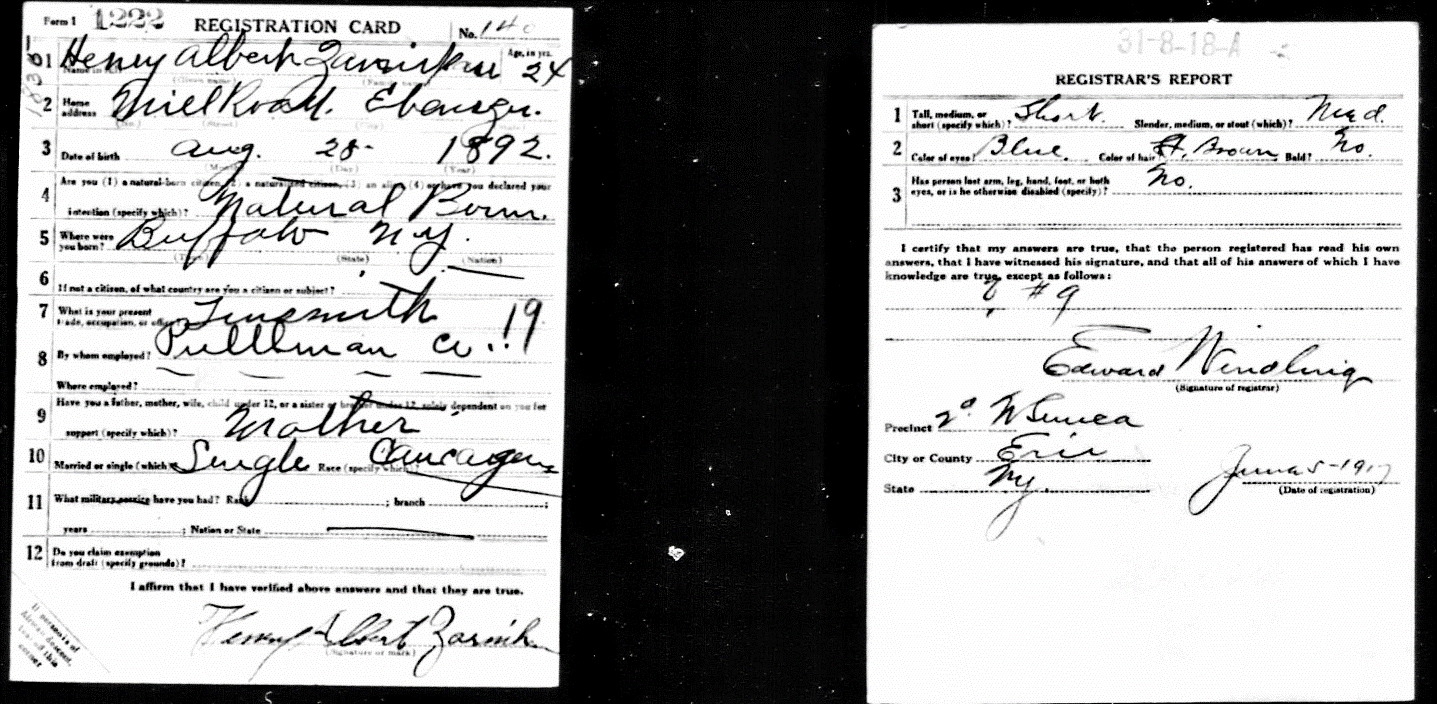 Form 1 1222 REGISTRATION CARD No. 140
1 Henry Albert Age, in yrs. 24
Name in full
(Given name) (Family name)
2 Home address Road. Ebenezer.
(No.) (Street) (City) (State)
3 Date of birth Aug. 28- 1892.
(Month) (Day) (Year)
4 Are you (1) a natural-born citizen, (2) a naturalized citizen, (3) an alien, (4) or have you declared your
intention (specify which)? Natural Born.
5 Where were you born? Buffalo N.Y.
(Town) (State) (Nation)
6 If not a citizen, of what country are you a citizen or subject?
7 What is your present trade, occupation, or office? Tinsmith 19
8 By whom employed? Pullman Co.
Where employed?
9 Have you a father, mother, wife, child under 12, or a sister or brother under 12, solely dependent on you for
support (specify which)? Mother
10 Married or single (which)? Single Race (specify which)?
11 What military service have you had? Rank ; branch ;
years ; Nation or State
12 Do you claim exemption from draft (specify grounds)?
I affirm that I have verified above answers and that they are true.
Henry Albert
(Signature or mark)
If person is of
African descent,
tear off this
corner
31-8-18-A
REGISTRAR'S REPORT
1 Tall, medium, or short (specify which)? Short. Slender, medium, or stout (which)? Med.
2 Color of eyes? Blue. Color of hair? Brown Bald? No.
3 Has person lost arm, leg, hand, foot, or both eyes, or is he otherwise disabled (specify)? No.
I certify that my answers are true, that the person registered has read his own
answers, that I have witnessed his signature, and that all of his answers of which I have
knowledge are true, except as follows:
#9
Edward Windling
(Signature of registrar)
Precinct 2" W Seneca
City or County Erie
State N.Y.
June 5-1917
(Date of registration)